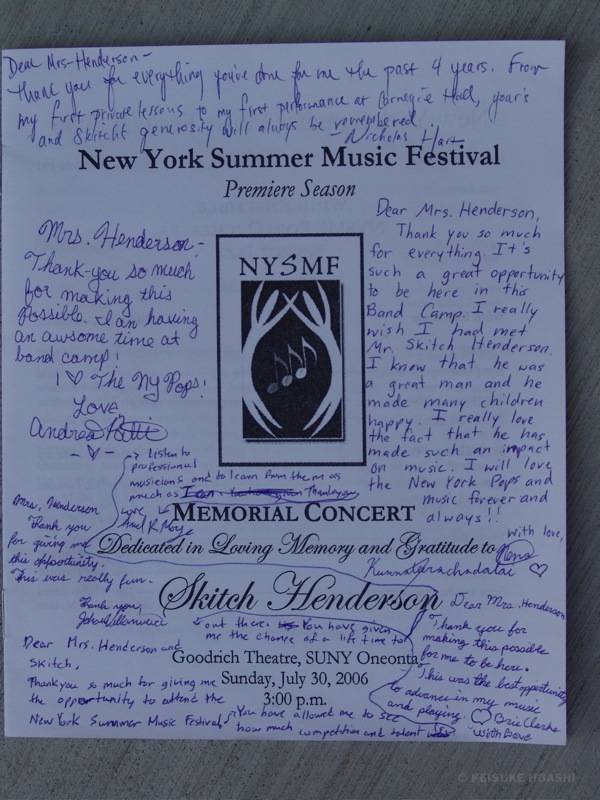 Dear Mrs. Henderson -
Thank you for everything you've done for me the past 4 years. From
my first private lessons to my first performance at Carnegie Hall, your's
and Skitch's generosity will always be remembered.
- Nicholas Hart
New York Summer Music Festival
Premiere Season
Mrs. Henderson -
Thank-you so much
for making this
Possible. I an having
an awsome time at
band camp!
I ♡ The Ny Pops!
Love
Andrea
- ♡ -
NYSMF
Dear Mrs. Henderson,
Thank you so much
for everything. It's
such a great opportunity
to be here in this
Band Camp. I really
wish I had met
Mr. Skitch Henderson.
I know that he was
a great man and he
made many children
happy. I really love
the fact that he has
made such an impact
on music. I will love
the New York Pops and
music forever and
always!!
with love,
Mrs. Henderson
Thank you
for giving me
this opportunity.
This was really fun.
Thank you,
MEMORIAL CONCERT
Dedicated in Loving Memory and Gratitude to
Skitch Henderson
Goodrich Theatre, SUNY Oneonta
Sunday, July 30, 2006
3:00 p.m.
Dear Mrs. Henderson and
Skitch,
Thankyou so much for giving me
the opportunity to attend the
New York Summer Music Festival.
You have allowed me to see
how much competition and talent
out there. You have given
me the chance of a life time to
listen to
professional
musicians and to learn from them as
much as I can. Thankyou
Love
Dear Mrs. Henderson
Thank you for
making this possible
for me to be here.
This was the best opportunity
to advance in my music
and playing.
♡ Brie Clarke
With Love
© KEISUKE HOASHI